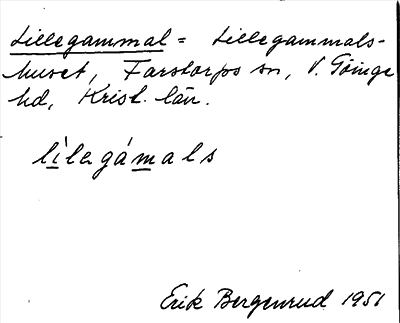 Lillegammal = Lillegammals-
huset, Farstorps sn, V. Göinge
hd, Krist. län.
lílegámals
Erik Bergenrud 1951